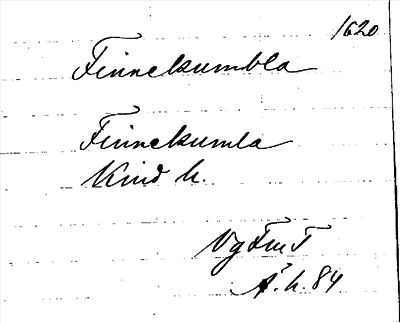 1620
Finnekumbla
Finnekumla
Kind h.
Vg Fm T
Ä. h. 84